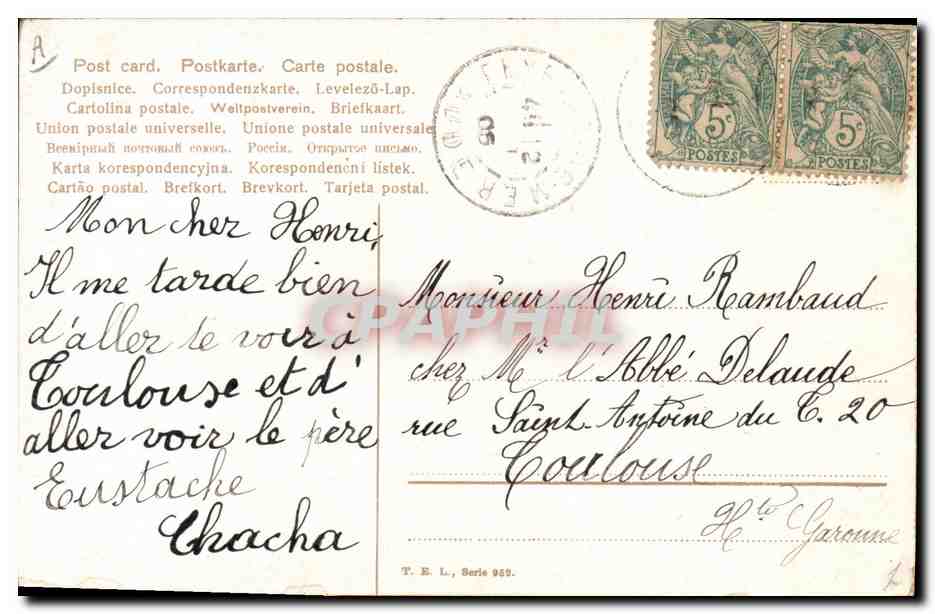 A
Post card. Postkarte. Carte postale.
Dopisnice. Correspondenzkarte. Levelező-Lap.
Cartolina postale. Weltpostverein. Briefkaart.
Union postale universelle. Unione postale universale
Всемірный почтовый союзъ. Россія. Открытое письмо.
Karta korespondencyjna. Korespondenční listek.
Cartão postal. Brefkort. Brevkort. Tarjeta postal.
5c
POSTES
5c
POSTES
Mon cher Henri,
Il me tarde bien
d'aller te voir à
Toulouse et d'
aller voir le père
Eustache
Chacha
Monsieur Henri Rambaud
chez Mr l'Abbé Delaude
rue Saint-Antoine du T. 20
Toulouse
Hte Garonne
T. E. L., Serie 952.
CPAPHIL